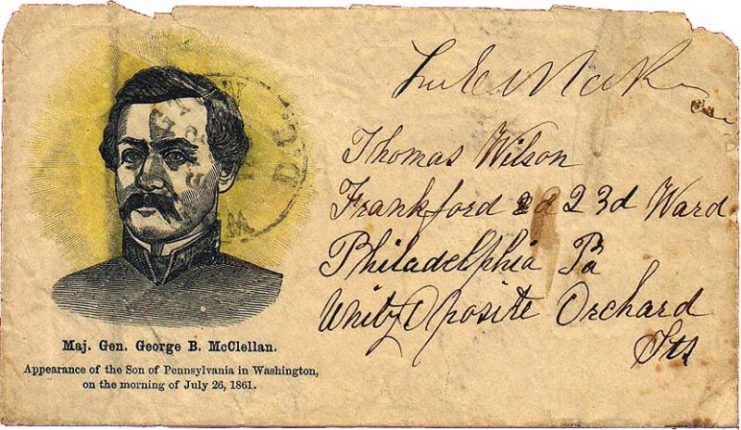 Thomas Wilson
Frankford 23d Ward
Philadelphia Pa
Oposite Orchard
Sts
WASHINGTON D.C.
Maj. Gen. George B. McClellan.
Appearance of the Son of Pennsylvania in Washington,
on the morning of July 26, 1861.